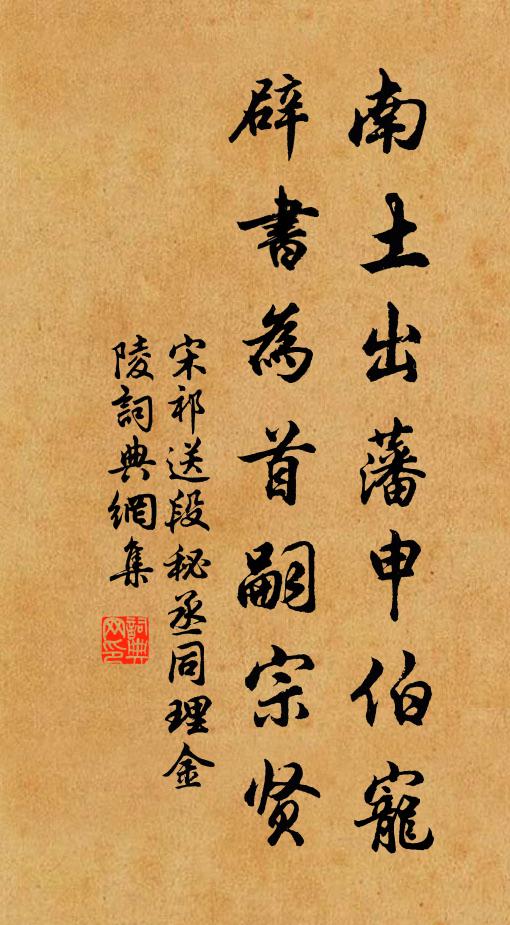 南土出藩申伯寵
辟書為首嗣宗贤
宋祁送段秘丞同理金
陵詞典網集
詞典
网印